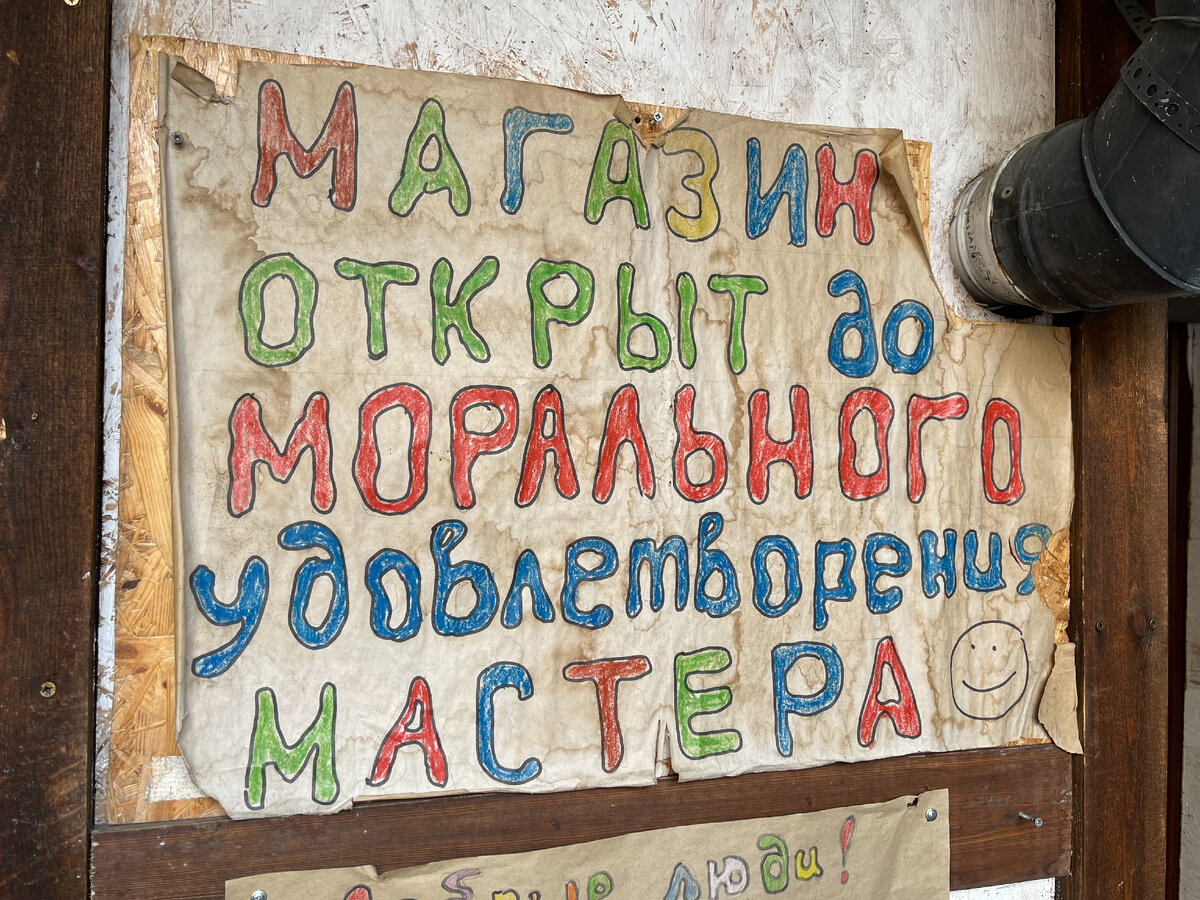 МАГАЗИН
ОТКРЫТ до
МОРАЛЬНОГО
удовлетворения
МАСТЕРА
добрые люди!